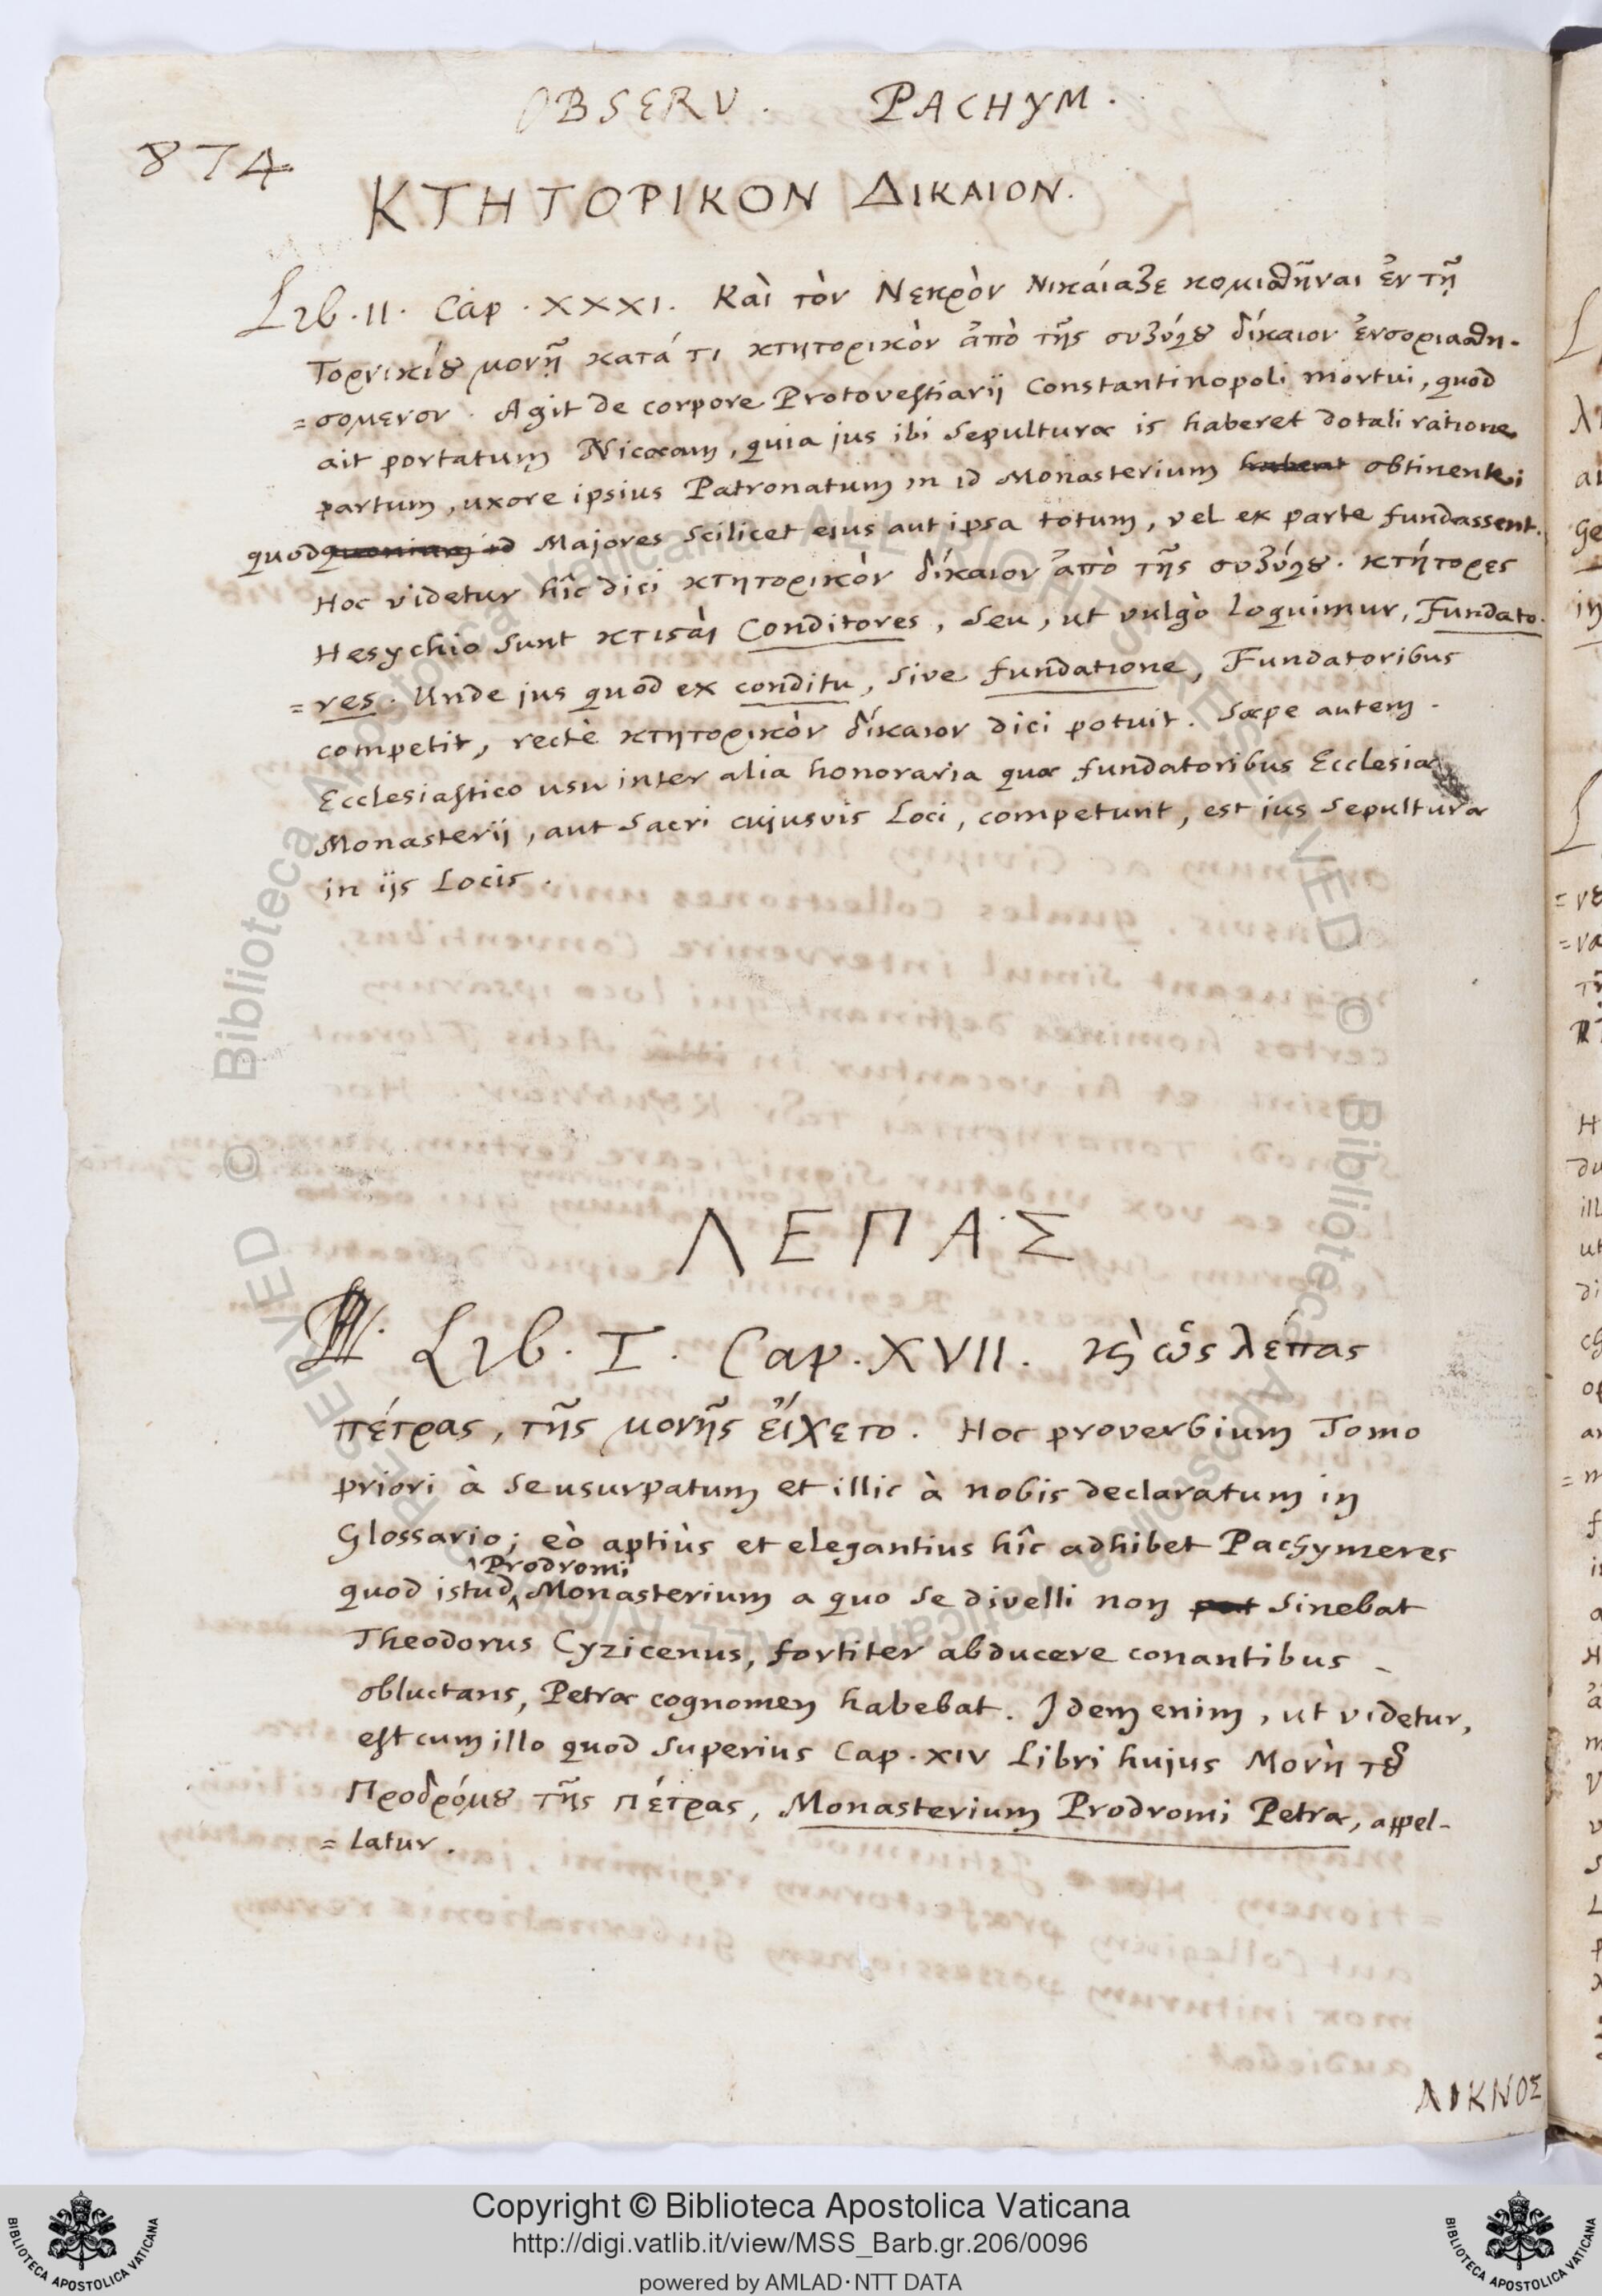 OBSERV. PACHYM.
874
ΚΤΗΤΟΡΙΚΟΝ ΔΙΚΑΙΟΝ.
Lib. II. Cap. XXXI. Καὶ τὸν Νεκρὸν Νικαίαζε κομισθῆναι ἐν τῇ
Τορνικίȣ μονῇ κατά τι κτητορικὸν ἀπὸ τῆς συζύγȣ δίκαιον ἐνσοριασθη-
=σομενον. Agit de corpore Protovestiarij Constantinopoli mortui, quod
ait portatum Nicæam, quia jus ibi Sepulturæ is haberet dotali ratione
partum, uxore ipsius Patronatum in id Monasterium habent obtinente;
quod quoniam id Majores Scilicet ejus aut ipsa totum, vel ex parte fundassent.
Hoc videtur hîc dici κτητορικὸν δίκαιον ἀπὸ τῆς συζύγȣ. κτήτορες
Hesychio Sunt κτιϛαὶ Conditores, Seu, ut vulgò Loquimur, Fundato-
=res. Unde jus quod ex conditu, Sive fundatione, Fundatoribus
competit, rectè κτητορικὸν δίκαιον dici potuit. Sæpe autem
Ecclesiastico usu inter alia honoraria quæ fundatoribus Ecclesiæ
Monasterij, aut Sacri cujusvis Loci, competunt, est jus Sepulturæ
in ijs Locis.
ΛΕΠΑΣ
Lib. I. Cap. XVII. ϗ̀ ὡς λέπας
πέτρας, τῆς μονῆς εἴχετο. Hoc proverbium Tomo
priori à Se usurpatum et illic à nobis declaratum in
Glossario; eò aptiùs et elegantius hîc adhibet Pachymeres
Prodromi
quod istud Monasterium a quo Se divelli non pat Sinebat
Theodorus Cyzicenus, fortiter abducere conantibus
obluctans, Petræ cognomen habebat. Idem enim, ut videtur,
est cum illo quod Superius Cap. XIV Libri hujus Μονὴ τȣ͂
Προδρόμȣ τῆς πέτρας, Monasterium Prodromi Petræ, appel-
=latur.
ΛΙΚΝΟΣ
© Biblioteca Apostolica Vaticana ALL RIGHTS RESERVED © Biblioteca Apostolica Vaticana ALL RIGHTS RESERVED
Copyright © Biblioteca Apostolica Vaticana
http://digi.vatlib.it/view/MSS_Barb.gr.206/0096
powered by AMLAD·NTT DATA
BIBLIOTECA APOSTOLICA VATICANA
BIBLIOTECA APOSTOLICA VATICANA